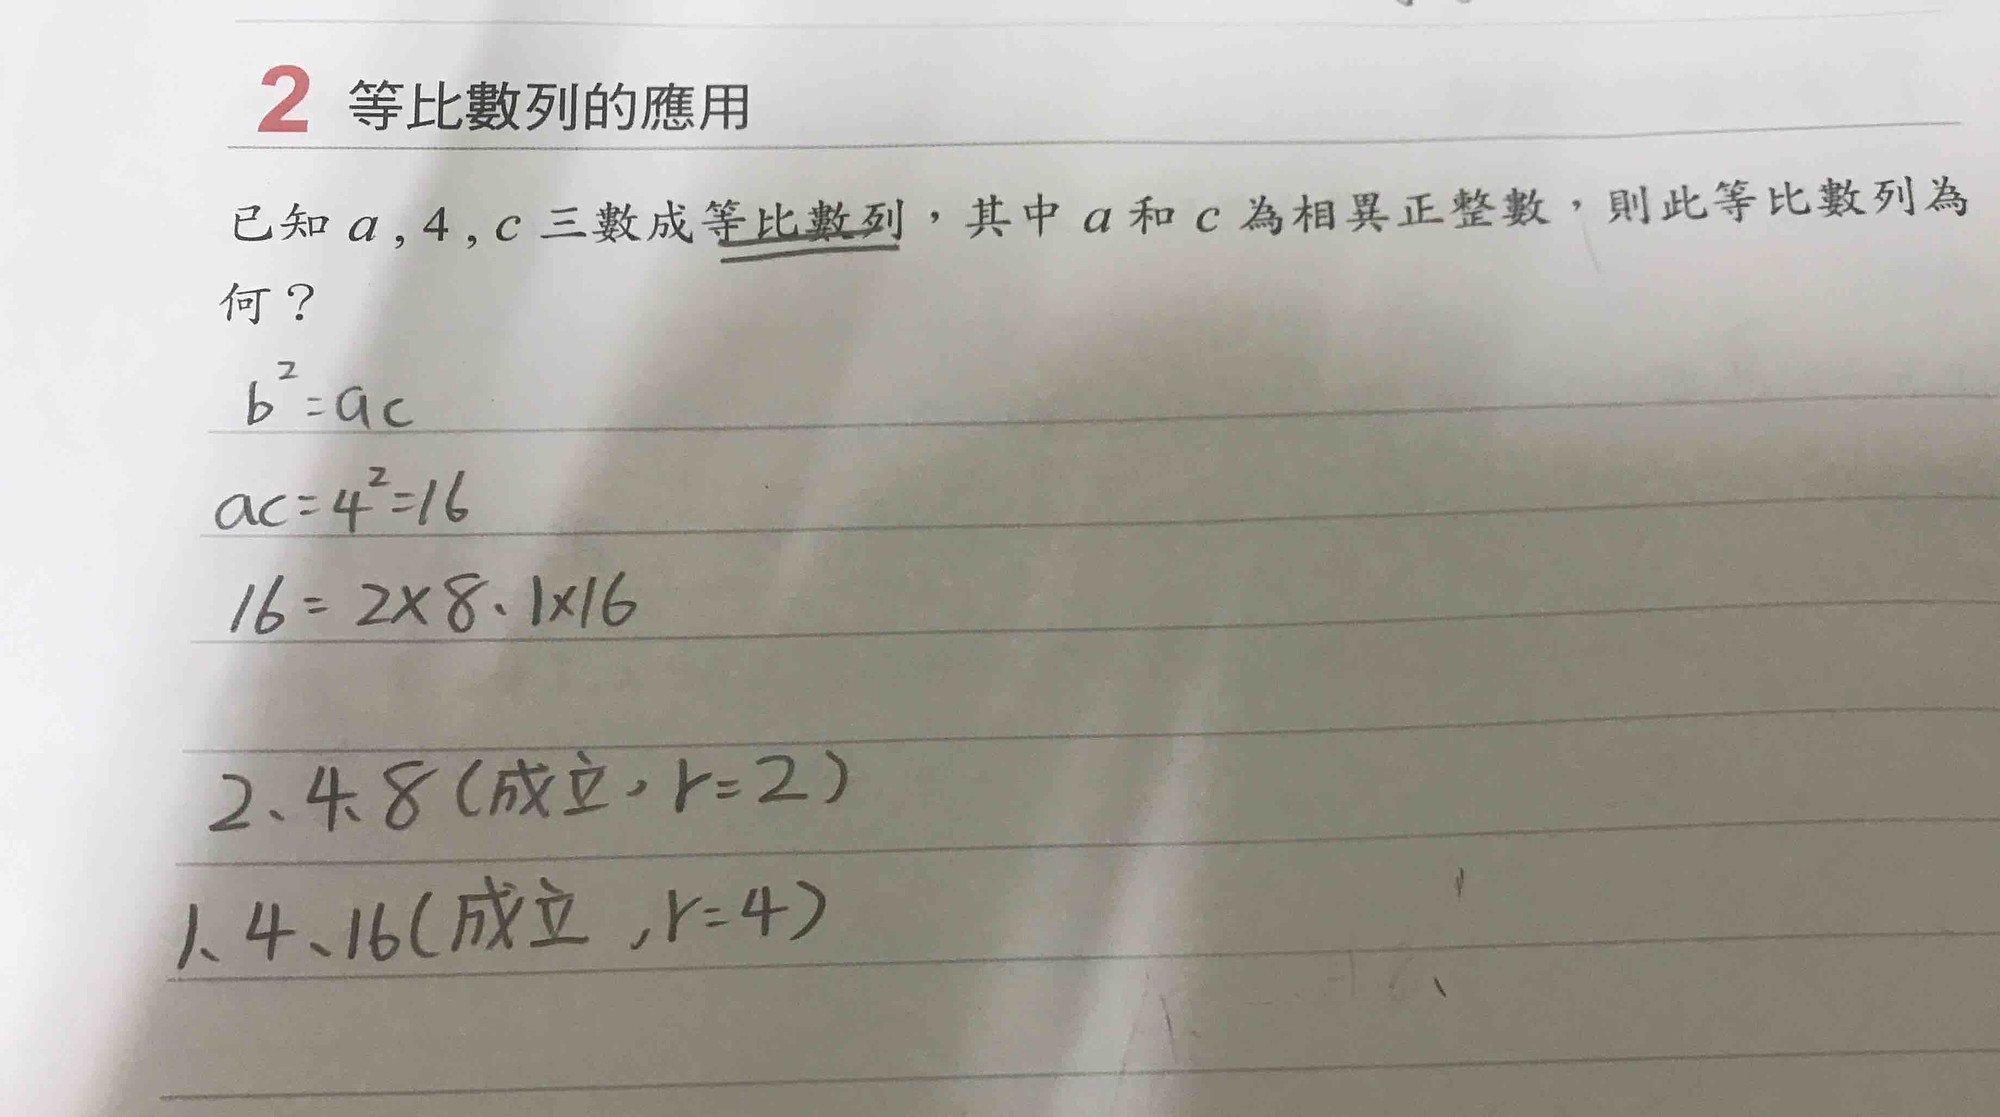 2 等比數列的應用
已知 a , 4 , c 三數成等比數列，其中 a 和 c 為相異正整數，則此等比數列為
何？
b²=ac
ac=4²=16
16=2×8、1×16
2、4、8(成立，r=2)
1、4、16(成立,r=4)